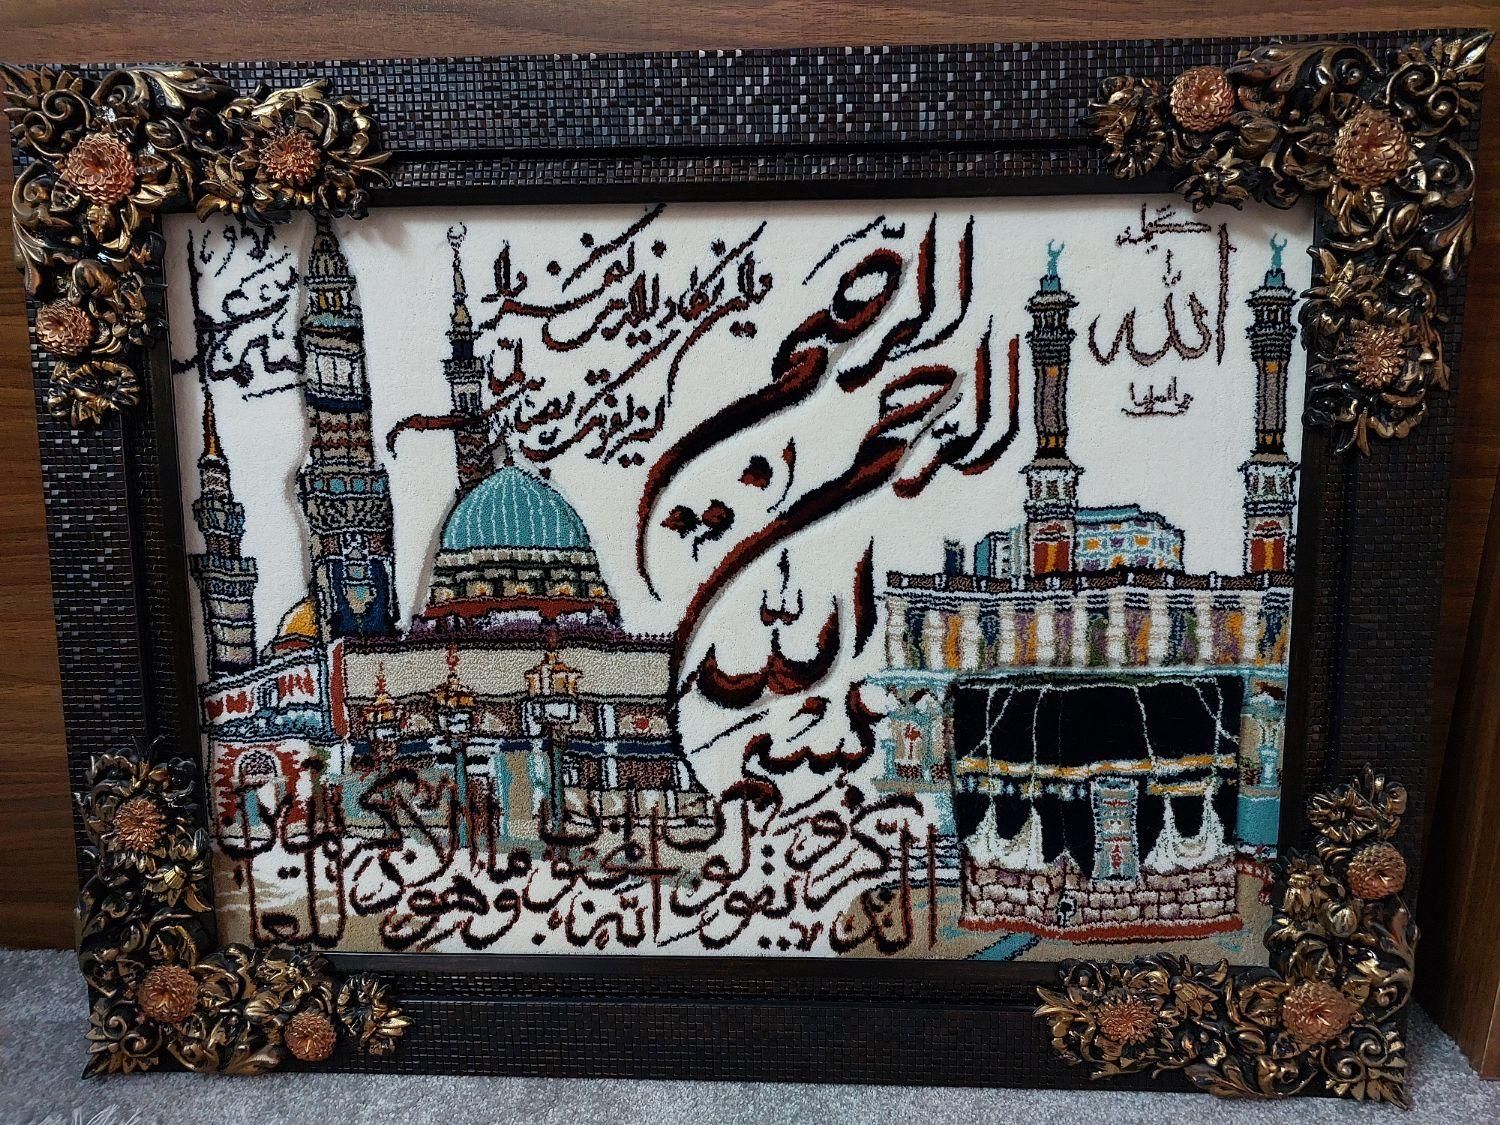 بسم
الله
الرحمن
الرحیم
وان یکاد الذین کفروا
لیزلقونک بابصارهم
لما سمعوا
الذکر و یقولون انه لمجنون وما هو الا ذکر للعالمین
الله